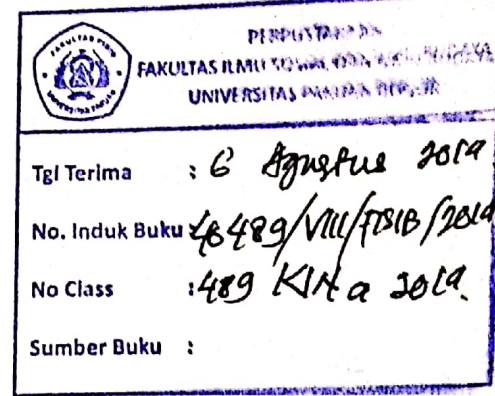 PERPUSTAKAAN
FAKULTAS ILMU SOSIAL DAN
UNIVERSITAS PAKUAN BOGOR
Tgl Terima : 6 Agustus 2019
No. Induk Buku : 489/VIII/FISIB/2019
No Class : 489 KIN a 2019.
Sumber Buku :